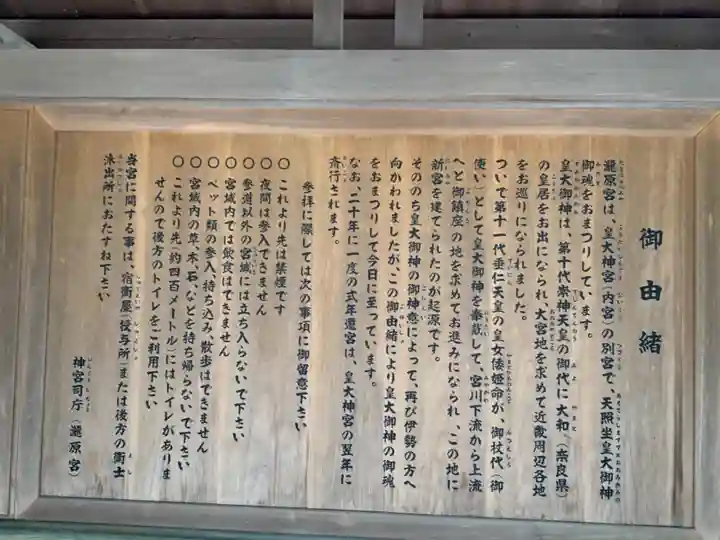 御由緒
瀧原宮は、皇大神宮(内宮)の別宮で、天照坐皇大御神
御魂をおまつりしています。
皇大御神は、第十代崇神天皇の御代に大和(奈良県)
の皇居をお出になられ、大宮地を求めて近畿周辺各地
をお巡りになられました。
ついで第十一代垂仁天皇の皇女倭姫命が、御杖代(御
使い)として皇大御神を奉戴して、宮川下流から上流
へと御鎮座の地を求めてお進みになられ、この地に
新宮を建てられたのが起源です。
そののち皇大御神の御神意によって、再び伊勢の方へ
向かわれましたが、この御由緒により皇大御神の御魂
をおまつりして今日に至っています。
なお、二十年に一度の式年遷宮は、皇大神宮の翌年に
斎行されます。
参拝に際しては次の事項に御留意下さい
○ これより先は禁煙です
○ 夜間は参入できません
○ 参道以外の宮域には立ち入らないで下さい
○ 宮域内では飲食はできません
○ ペット類の参入、持ち込み、散歩はできません
○ 宮域内の草、木、石、などを持ち帰らないで下さい
○ これより先(約四百メートル)にはトイレがありま
せんので後方のトイレをご利用下さい
当宮に関する事は、宿衛屋(授与所)または後方の衛士
派出所におたずね下さい
神宮司庁(瀧原宮)